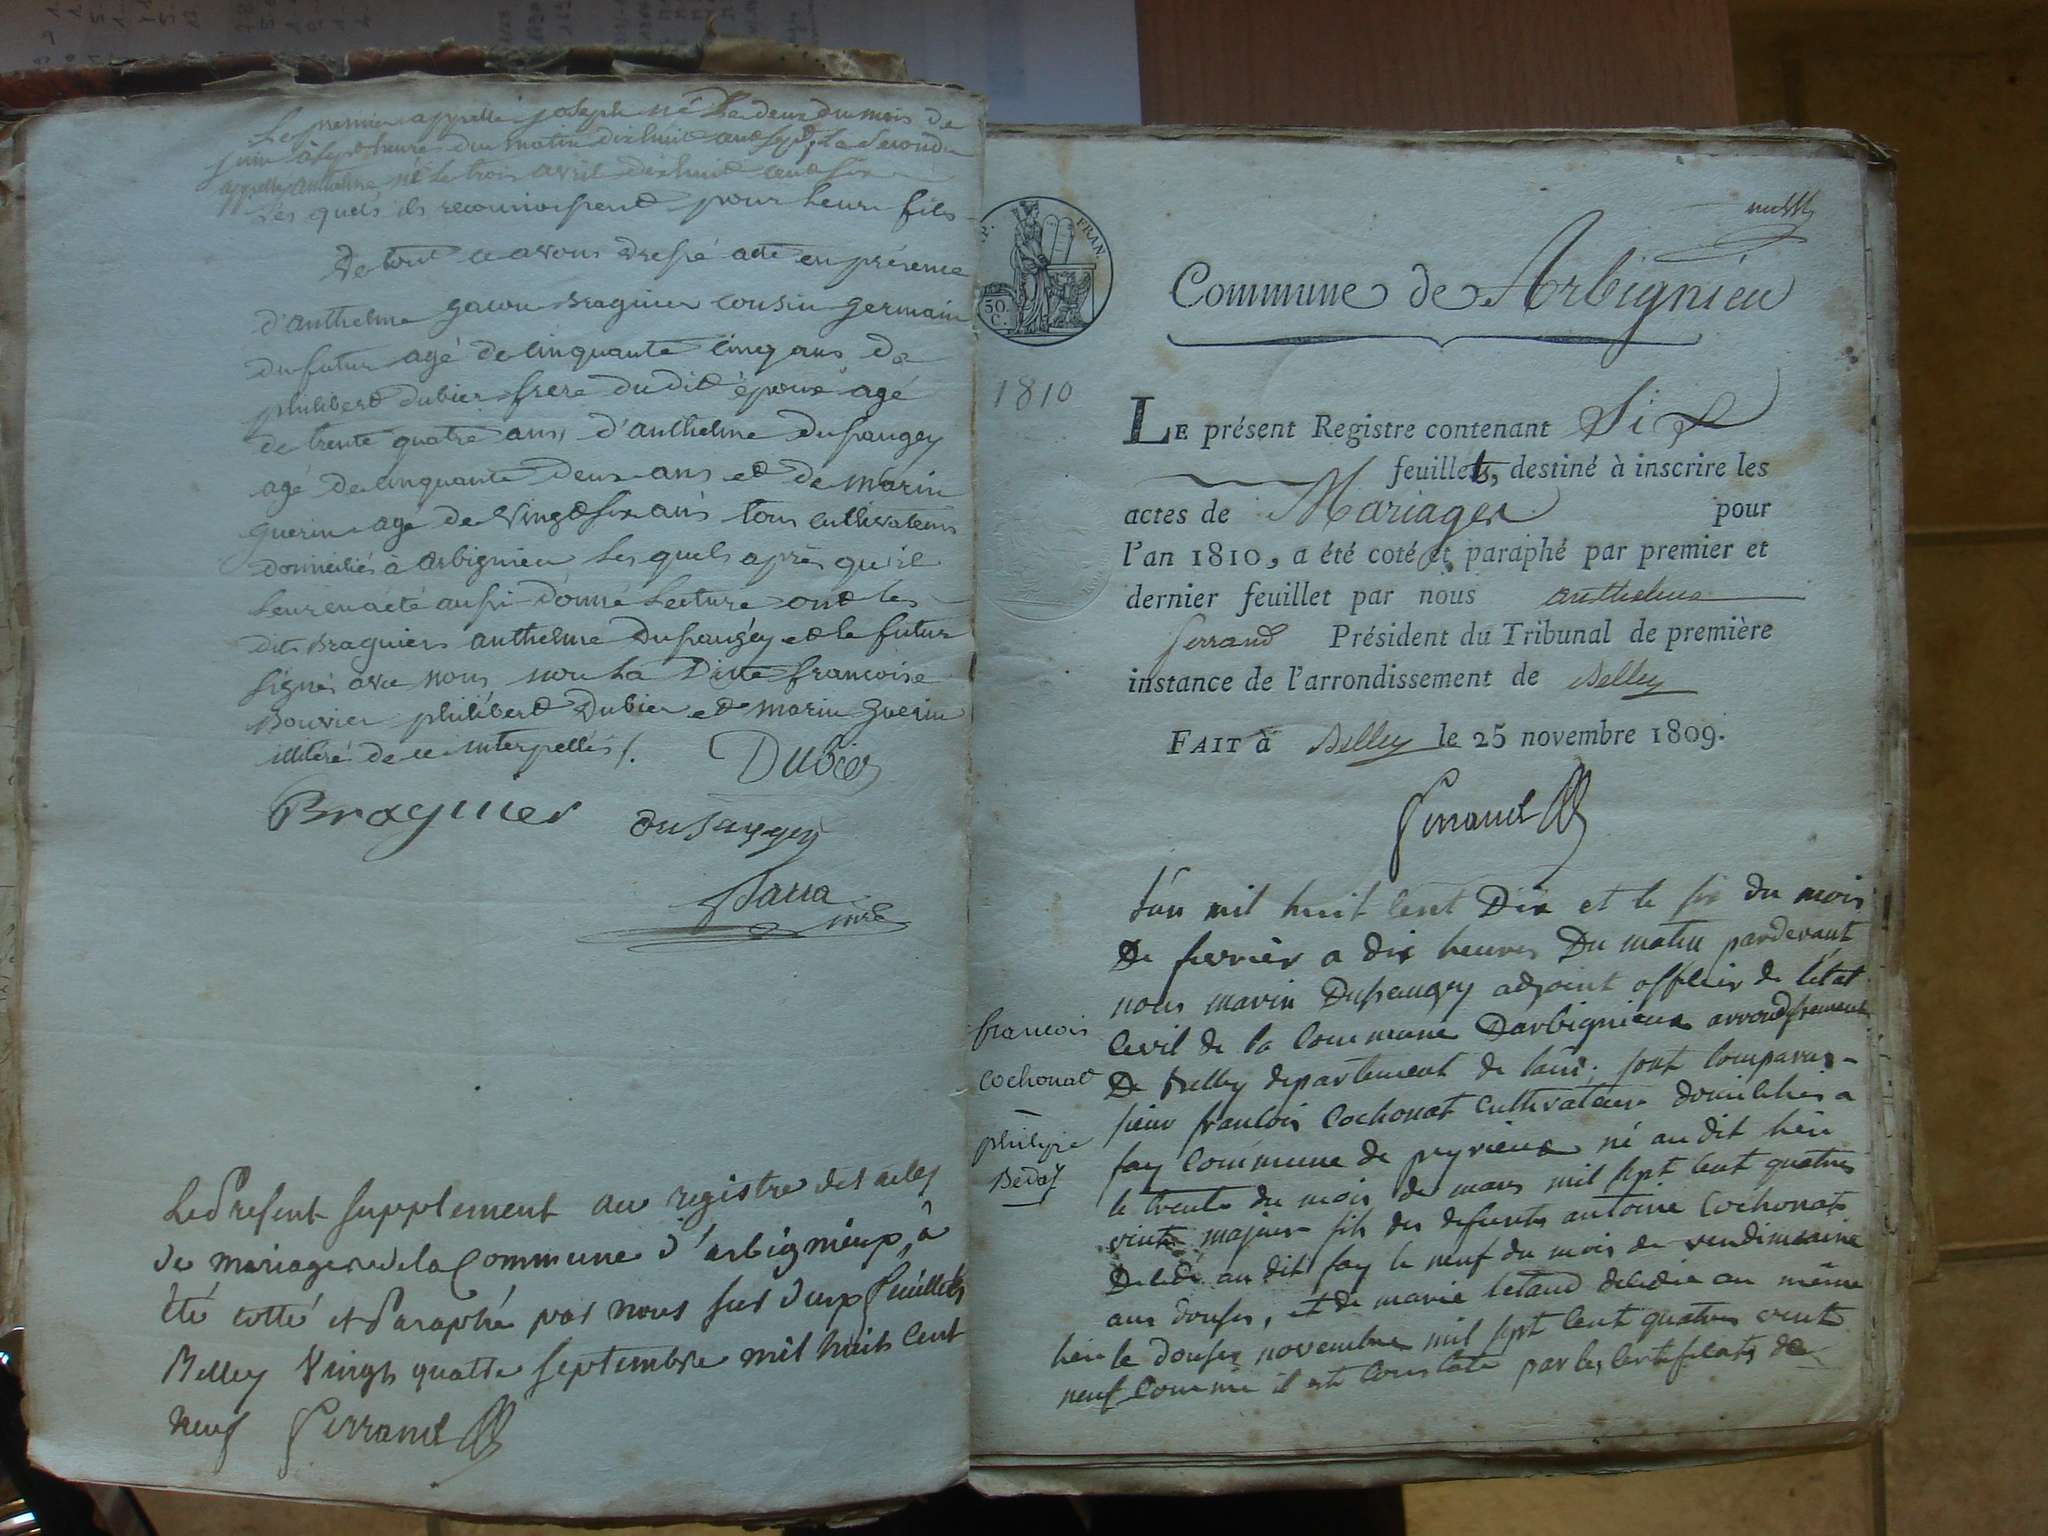 Le premier appellé joseph né le deux du mois de
juin à sept heures du matin dix huit cent sept, le second
appellé anthelme né le trois avril dix huit cent six
Les quels ils reconnoissent pour leurs fils
De tout ce avons dressé acte en présence
d'anthelme gacon Braguier cousin germain
du futur agé de cinquante cinq ans de
philibert dubier frere du dit époux agé
de trente quatre ans, d'anthelme Dusaugey
agé de cinquante deux ans et de marin
guerin agé de vingt six ans tous cultivateurs
domiciliés à arbignieu les quels après qu'il
leur en a été aussi donné Lecture ont les
dits Braguier anthelme Dusaugey et le futur
signés avec nous non la Ditte françoise
Bouvier philibert Dubier et marin guerin
illiteré de ce interpellés /.
Dubier
Braguier dusaugey
maire
Le Present supplement au registre des actes
de mariages de la Commune d'arbignieux, à
été cotté et Paraphé par nous sur deux feuillets
Belley Vingt quatre septembre mil huit Cent
neuf Ferrand
FRAN.
50.
C.
Commune de Arbignieu
1810
LE présent Registre contenant Six
feuillets, destiné à inscrire les
actes de Mariages pour
l'an 1810, a été coté et paraphé par premier et
dernier feuillet par nous anthelme
ferrand Président du Tribunal de première
instance de l'arrondissement de Belley
FAIT à Belley le 25 novembre 1809.
Ferrand
L'an mil huit Cent Dix et le six du mois
De fevrier a dix heures Du matin pardevant
nous marin Dusaugey adjoint officier de l'état
Civil de la Commune Darbignieux arrondissement
De Belley departement de lain. sont comparus
françois
cochonat
philipe
sieur francois Cochonat Cultivateur domicilies a
fay Commune de peyrieux né au dit lieu
le trente du mois de mars mil sept cent quatre
vint majeur fils des defunts antoine Cochonat
Decede au dit fay le neuf du mois de vendimiaire
an douse, et de marie letand décédée au même
lieu le douse novembre mil sept cent quatre vint
neuf Comme il est Constaté par les certificats de